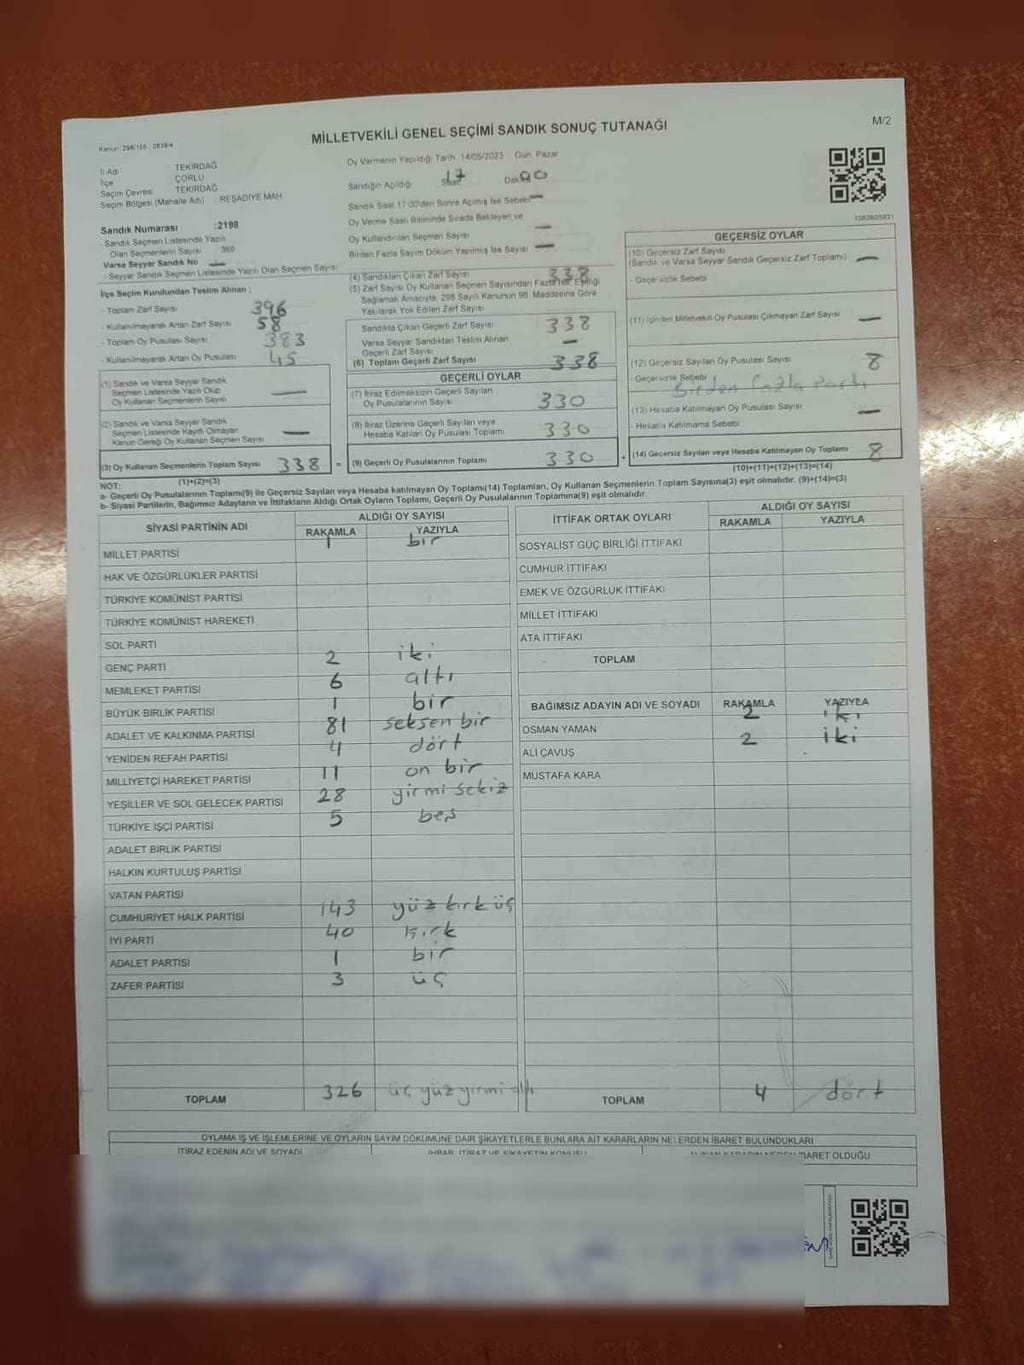 M/2
MİLLETVEKİLİ GENEL SEÇİMİ SANDIK SONUÇ TUTANAĞI
İl Adı TEKİRDAĞ
İlçe ÇORLU
Seçim Çevresi TEKİRDAĞ
Seçim Bölgesi (Mahalle Adı) REŞADİYE MAH
Sandık Numarası :2198
- Sandık Seçmen Listesinde Yazılı
Olan Seçmenlerin Sayısı
Varsa Seyyar Sandık No —
- Seyyar Sandık Seçmen Listesinde Yazılı Olan Seçmen Sayısı
İlçe Seçim Kurulundan Teslim Alınan ;
- Toplam Zarf Sayısı 396
- Kullanılmayarak Artan Zarf Sayısı 58
- Toplam Oy Pusulası Sayısı 383
- Kullanılmayarak Artan Oy Pusulası 45
(1) Sandık ve Varsa Seyyar Sandık
Seçmen Listesinde Yazılı Olup
Oy Kullanan Seçmenlerin Sayısı —
(2) Sandık ve Varsa Seyyar Sandık
Seçmen Listesinde Kayıtlı Olmayan
Kanun Gereği Oy Kullanan Seçmen Sayısı —
(3) Oy Kullanan Seçmenlerin Toplam Sayısı 338
(1)+(2)=(3)
Oy Vermenin Yapıldığı Tarih :14/05/2023 Gün Pazar
Sandığın Açıldığı Saat 17 Dakika 00
Sandık Saat 17:00'den Sonra Açılmış İse Sebebi —
Oy Verme Saati Bitiminde Sırada Bekleyen ve
Oy Kullandırılan Seçmen Sayısı —
Birden Fazla Sayım Döküm Yapılmış İse Sayısı —
(4) Sandıktan Çıkan Zarf Sayısı 338
(5) Zarf Sayısı Oy Kullanan Seçmen Sayısından Fazla İse, Eşitliği
Sağlamak Amacıyla, 298 Sayılı Kanunun 98. Maddesine Göre
Yakılarak Yok Edilen Zarf Sayısı
Sandıkta Çıkan Geçerli Zarf Sayısı 338
Varsa Seyyar Sandıktan Teslim Alınan
Geçerli Zarf Sayısı —
(6) Toplam Geçerli Zarf Sayısı 338
GEÇERLİ OYLAR
(7) İtiraz Edilmeksizin Geçerli Sayılan
Oy Pusulalarının Sayısı 330
(8) İtiraz Üzerine Geçerli Sayılan veya
Hesaba Katılan Oy Pusulası Toplamı 330
(9) Geçerli Oy Pusulalarının Toplamı 330
1083605031
GEÇERSİZ OYLAR
(10) Geçersiz Zarf Sayısı
(Sandık ve Varsa Seyyar Sandık Geçersiz Zarf Toplamı) —
- Geçersizlik Sebebi
(11) İçinden Milletvekili Oy Pusulası Çıkmayan Zarf Sayısı —
(12) Geçersiz Sayılan Oy Pusulası Sayısı 8
- Geçersizlik Sebebi Birden fazla parti
(13) Hesaba Katılmayan Oy Pusulası Sayısı —
- Hesaba Katılmama Sebebi
(14) Geçersiz Sayılan veya Hesaba Katılmayan Oy Toplamı 8
(10)+(11)+(12)+(13)=(14)
NOT:
a- Geçerli Oy Pusulalarının Toplamı(9) ile Geçersiz Sayılan veya Hesaba katılmayan Oy Toplamı(14) Toplamları, Oy Kullanan Seçmenlerin Toplam Sayısına(3) eşit olmalıdır. (9)+(14)=(3)
b- Siyasi Partilerin, Bağımsız Adayların ve İttifakların Aldığı Ortak Oyların Toplamı, Geçerli Oy Pusulalarının Toplamına(9) eşit olmalıdır.
SİYASİ PARTİNİN ADI ALDIĞI OY SAYISI
RAKAMLA YAZIYLA
MİLLET PARTİSİ 1 bir
HAK VE ÖZGÜRLÜKLER PARTİSİ
TÜRKİYE KOMÜNİST PARTİSİ
TÜRKİYE KOMÜNİST HAREKETİ
SOL PARTİ
GENÇ PARTİ 2 iki
MEMLEKET PARTİSİ 6 altı
BÜYÜK BİRLİK PARTİSİ 1 bir
ADALET VE KALKINMA PARTİSİ 81 seksen bir
YENİDEN REFAH PARTİSİ 4 dört
MİLLİYETÇİ HAREKET PARTİSİ 11 on bir
YEŞİLLER VE SOL GELECEK PARTİSİ 28 yirmi sekiz
TÜRKİYE İŞÇİ PARTİSİ 5 beş
ADALET BİRLİK PARTİSİ
HALKIN KURTULUŞ PARTİSİ
VATAN PARTİSİ
CUMHURİYET HALK PARTİSİ 143 yüz kırk üç
İYİ PARTİ 40 kırk
ADALET PARTİSİ 1 bir
ZAFER PARTİSİ 3 üç
TOPLAM 326 üç yüz yirmi altı
İTTİFAK ORTAK OYLARI ALDIĞI OY SAYISI
RAKAMLA YAZIYLA
SOSYALİST GÜÇ BİRLİĞİ İTTİFAKI
CUMHUR İTTİFAKI
EMEK VE ÖZGÜRLÜK İTTİFAKI
MİLLET İTTİFAKI
ATA İTTİFAKI
TOPLAM
BAĞIMSIZ ADAYIN ADI VE SOYADI RAKAMLA YAZIYLA
OSMAN YAMAN 2 iki
ALİ ÇAVUŞ 2 iki
MUSTAFA KARA
TOPLAM 4 dört
OYLAMA İŞ VE İŞLEMLERİNE VE OYLARIN SAYIM DÖKÜMÜNE DAİR ŞİKAYETLERLE BUNLARA AİT KARARLARIN NELERDEN İBARET BULUNDUKLARI
İTİRAZ EDENİN ADI VE SOYADI İHBAR, İTİRAZ VE ŞİKAYETİN KONUSU ALINAN KARARIN NEDEN İBARET OLDUĞU